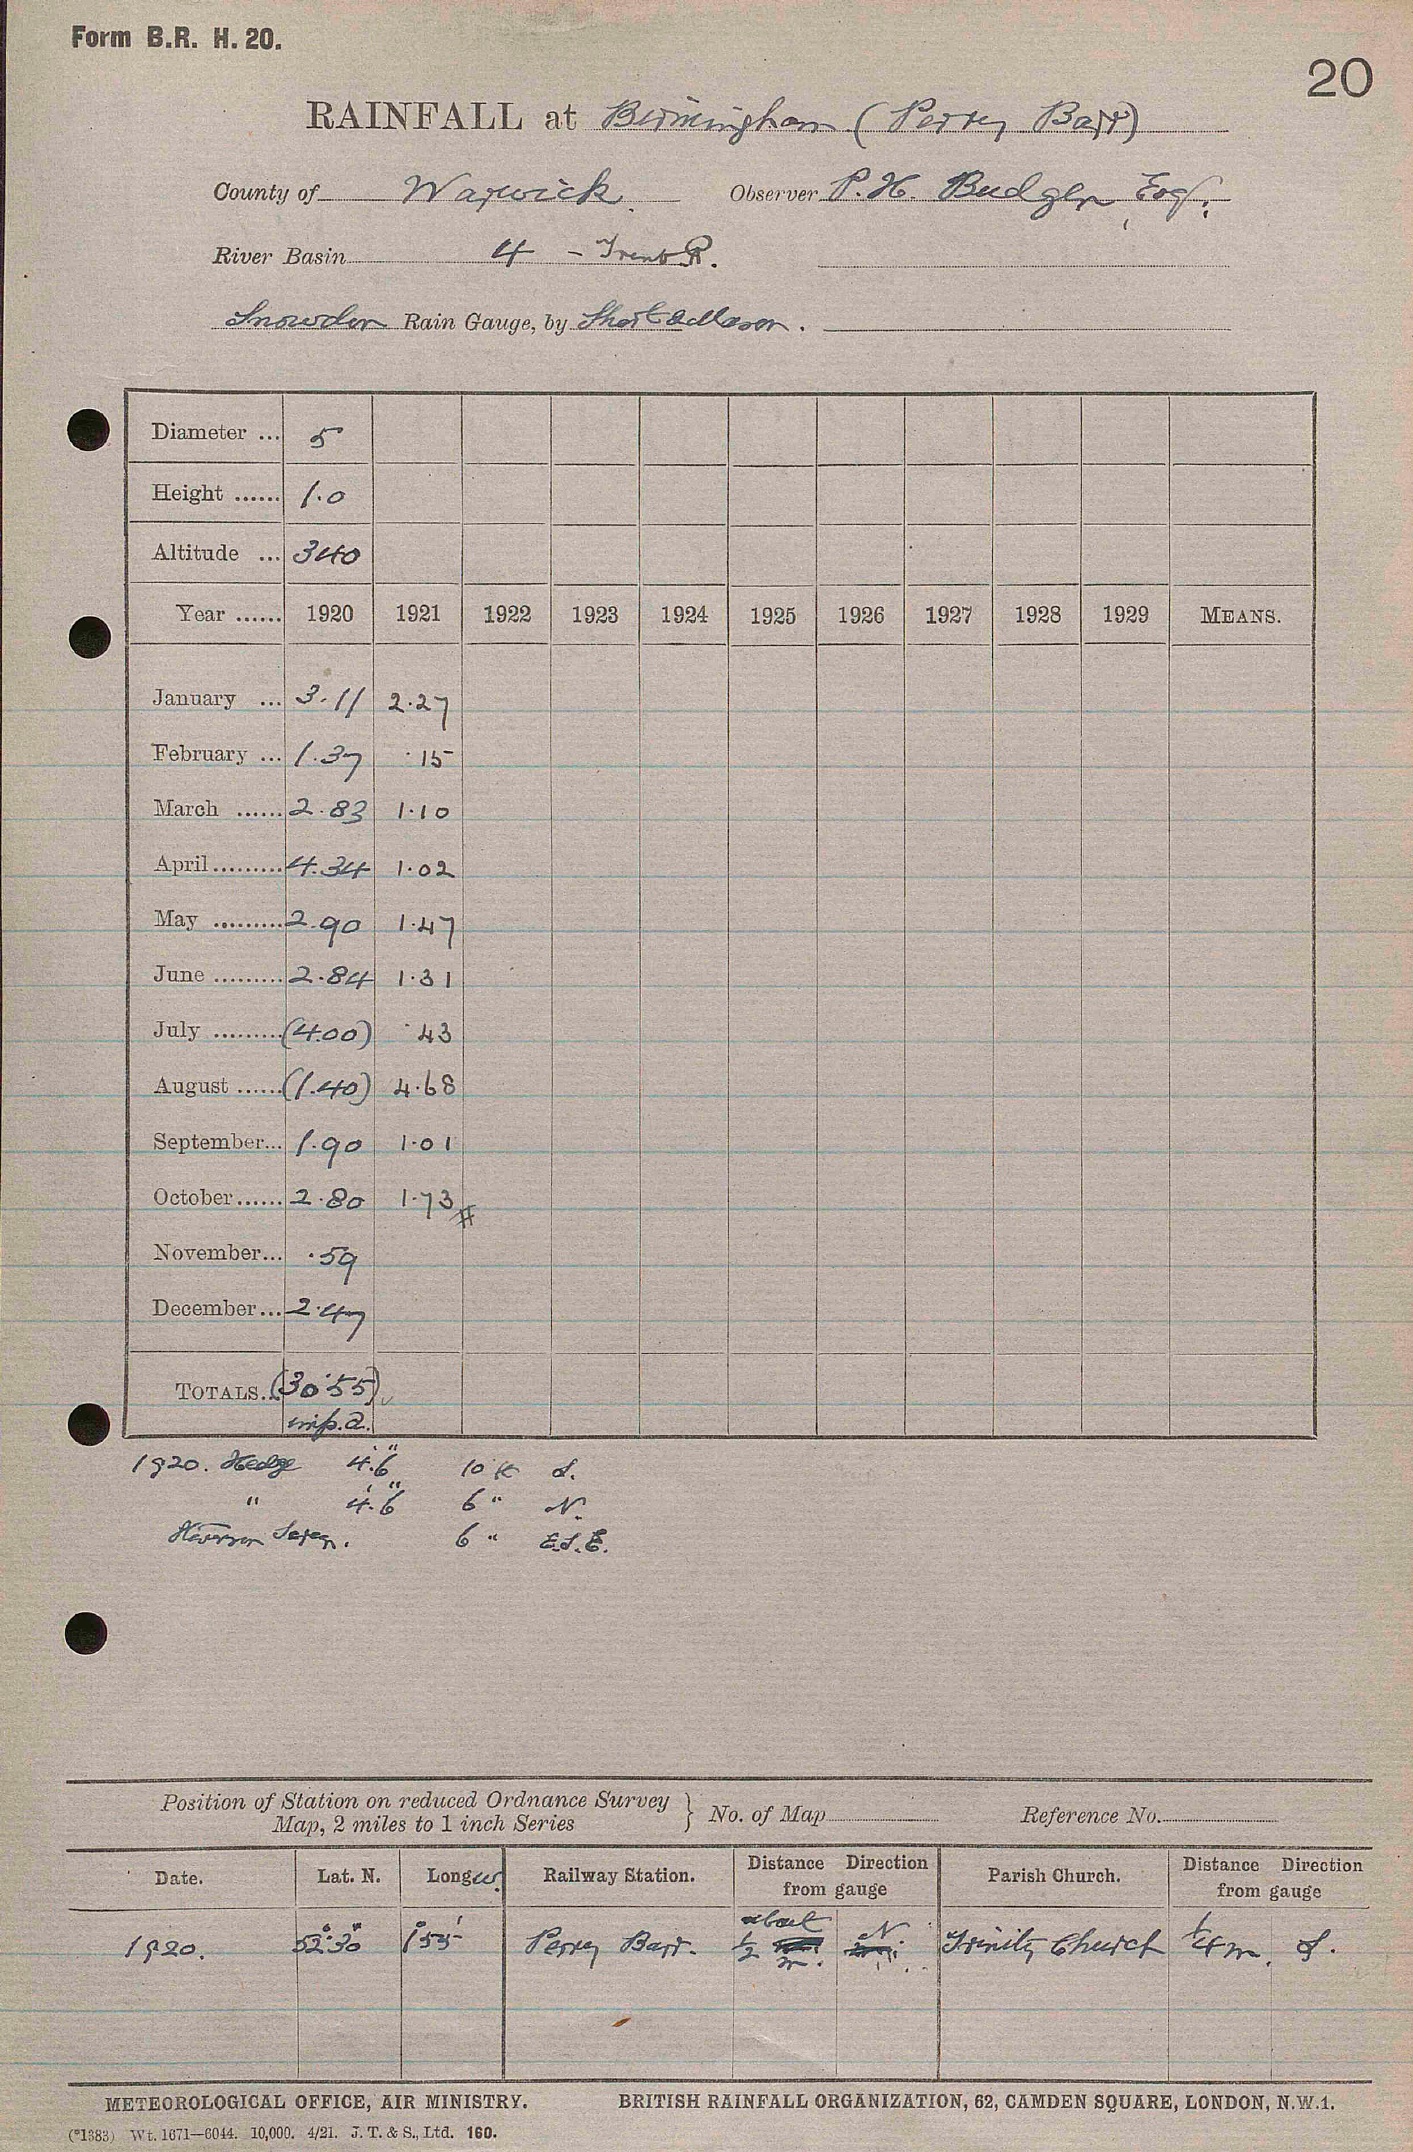 Form B.R. H. 20.
20
RAINFALL at Birmingham (Perry Barr)
County of Warwick. Observer P. H. Budgen, Esq.
River Basin 4 - Trent R.
Snowdon Rain Gauge, by Short & Mason.
Diameter ... 5
Height ...... 1.0
Altitude ... 340
Year ...... 1920 1921 1922 1923 1924 1925 1926 1927 1928 1929 MEANS.
January ... 3.11 2.27
February ... 1.37 .15
March ...... 2.83 1.10
April ......... 4.34 1.02
May ......... 2.90 1.47
June ......... 2.84 1.31
July ......... (4.00) .43
August ...... (1.40) 4.68
September... 1.90 1.01
October...... 2.80 1.73 #
November... .59
December... 2.47
TOTALS... (30.55)
imp. a.
1920. Hedge 4' 6" 10 ft S.
" 4' 6" 6 " N.
6 " E.S.E.
Position of Station on reduced Ordnance Survey
Map, 2 miles to 1 inch Series } No. of Map Reference No.
Date. Lat. N. Long W. Railway Station. Distance Direction from gauge Parish Church. Distance Direction from gauge
1920. 52° 30' 1° 55' Perry Barr. about 1/2 m. N Trinity Church 1/4 m. S.
METEOROLOGICAL OFFICE, AIR MINISTRY. BRITISH RAINFALL ORGANIZATION, 62, CAMDEN SQUARE, LONDON, N.W.1.
(*1383) Wt. 1671—6044. 10,000. 4/21. J. T. & S., Ltd. 160.